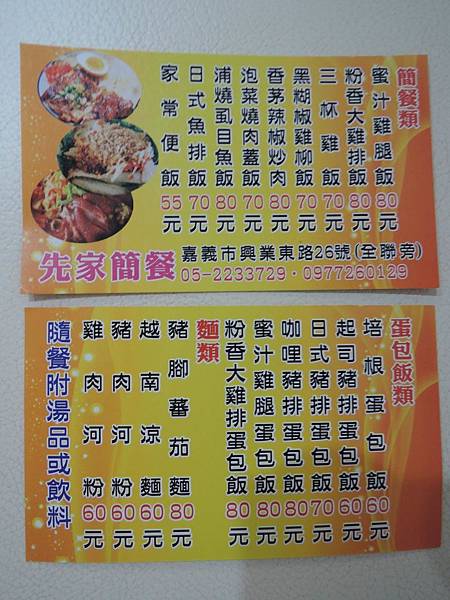 簡餐類
蜜汁雞腿飯80元
粉香大雞排飯80元
三杯雞飯70元
黑糊椒雞柳飯70元
香茅辣椒炒肉80元
泡菜燒肉蓋飯70元
浦燒虱目魚飯80元
日式魚排飯70元
家常便飯55元
先家簡餐
嘉義市興業東路26號(全聯旁)
05-2233729・0977260129
蛋包飯類
培根蛋包飯60元
起司豬排蛋包飯60元
日式豬排蛋包飯70元
咖哩豬排蛋包飯80元
蜜汁雞腿蛋包飯80元
粉香大雞排蛋包飯80元
麵類
豬腳蕃茄麵80元
越南涼麵60元
豬肉河粉60元
雞肉河粉60元
隨餐附湯品或飲料